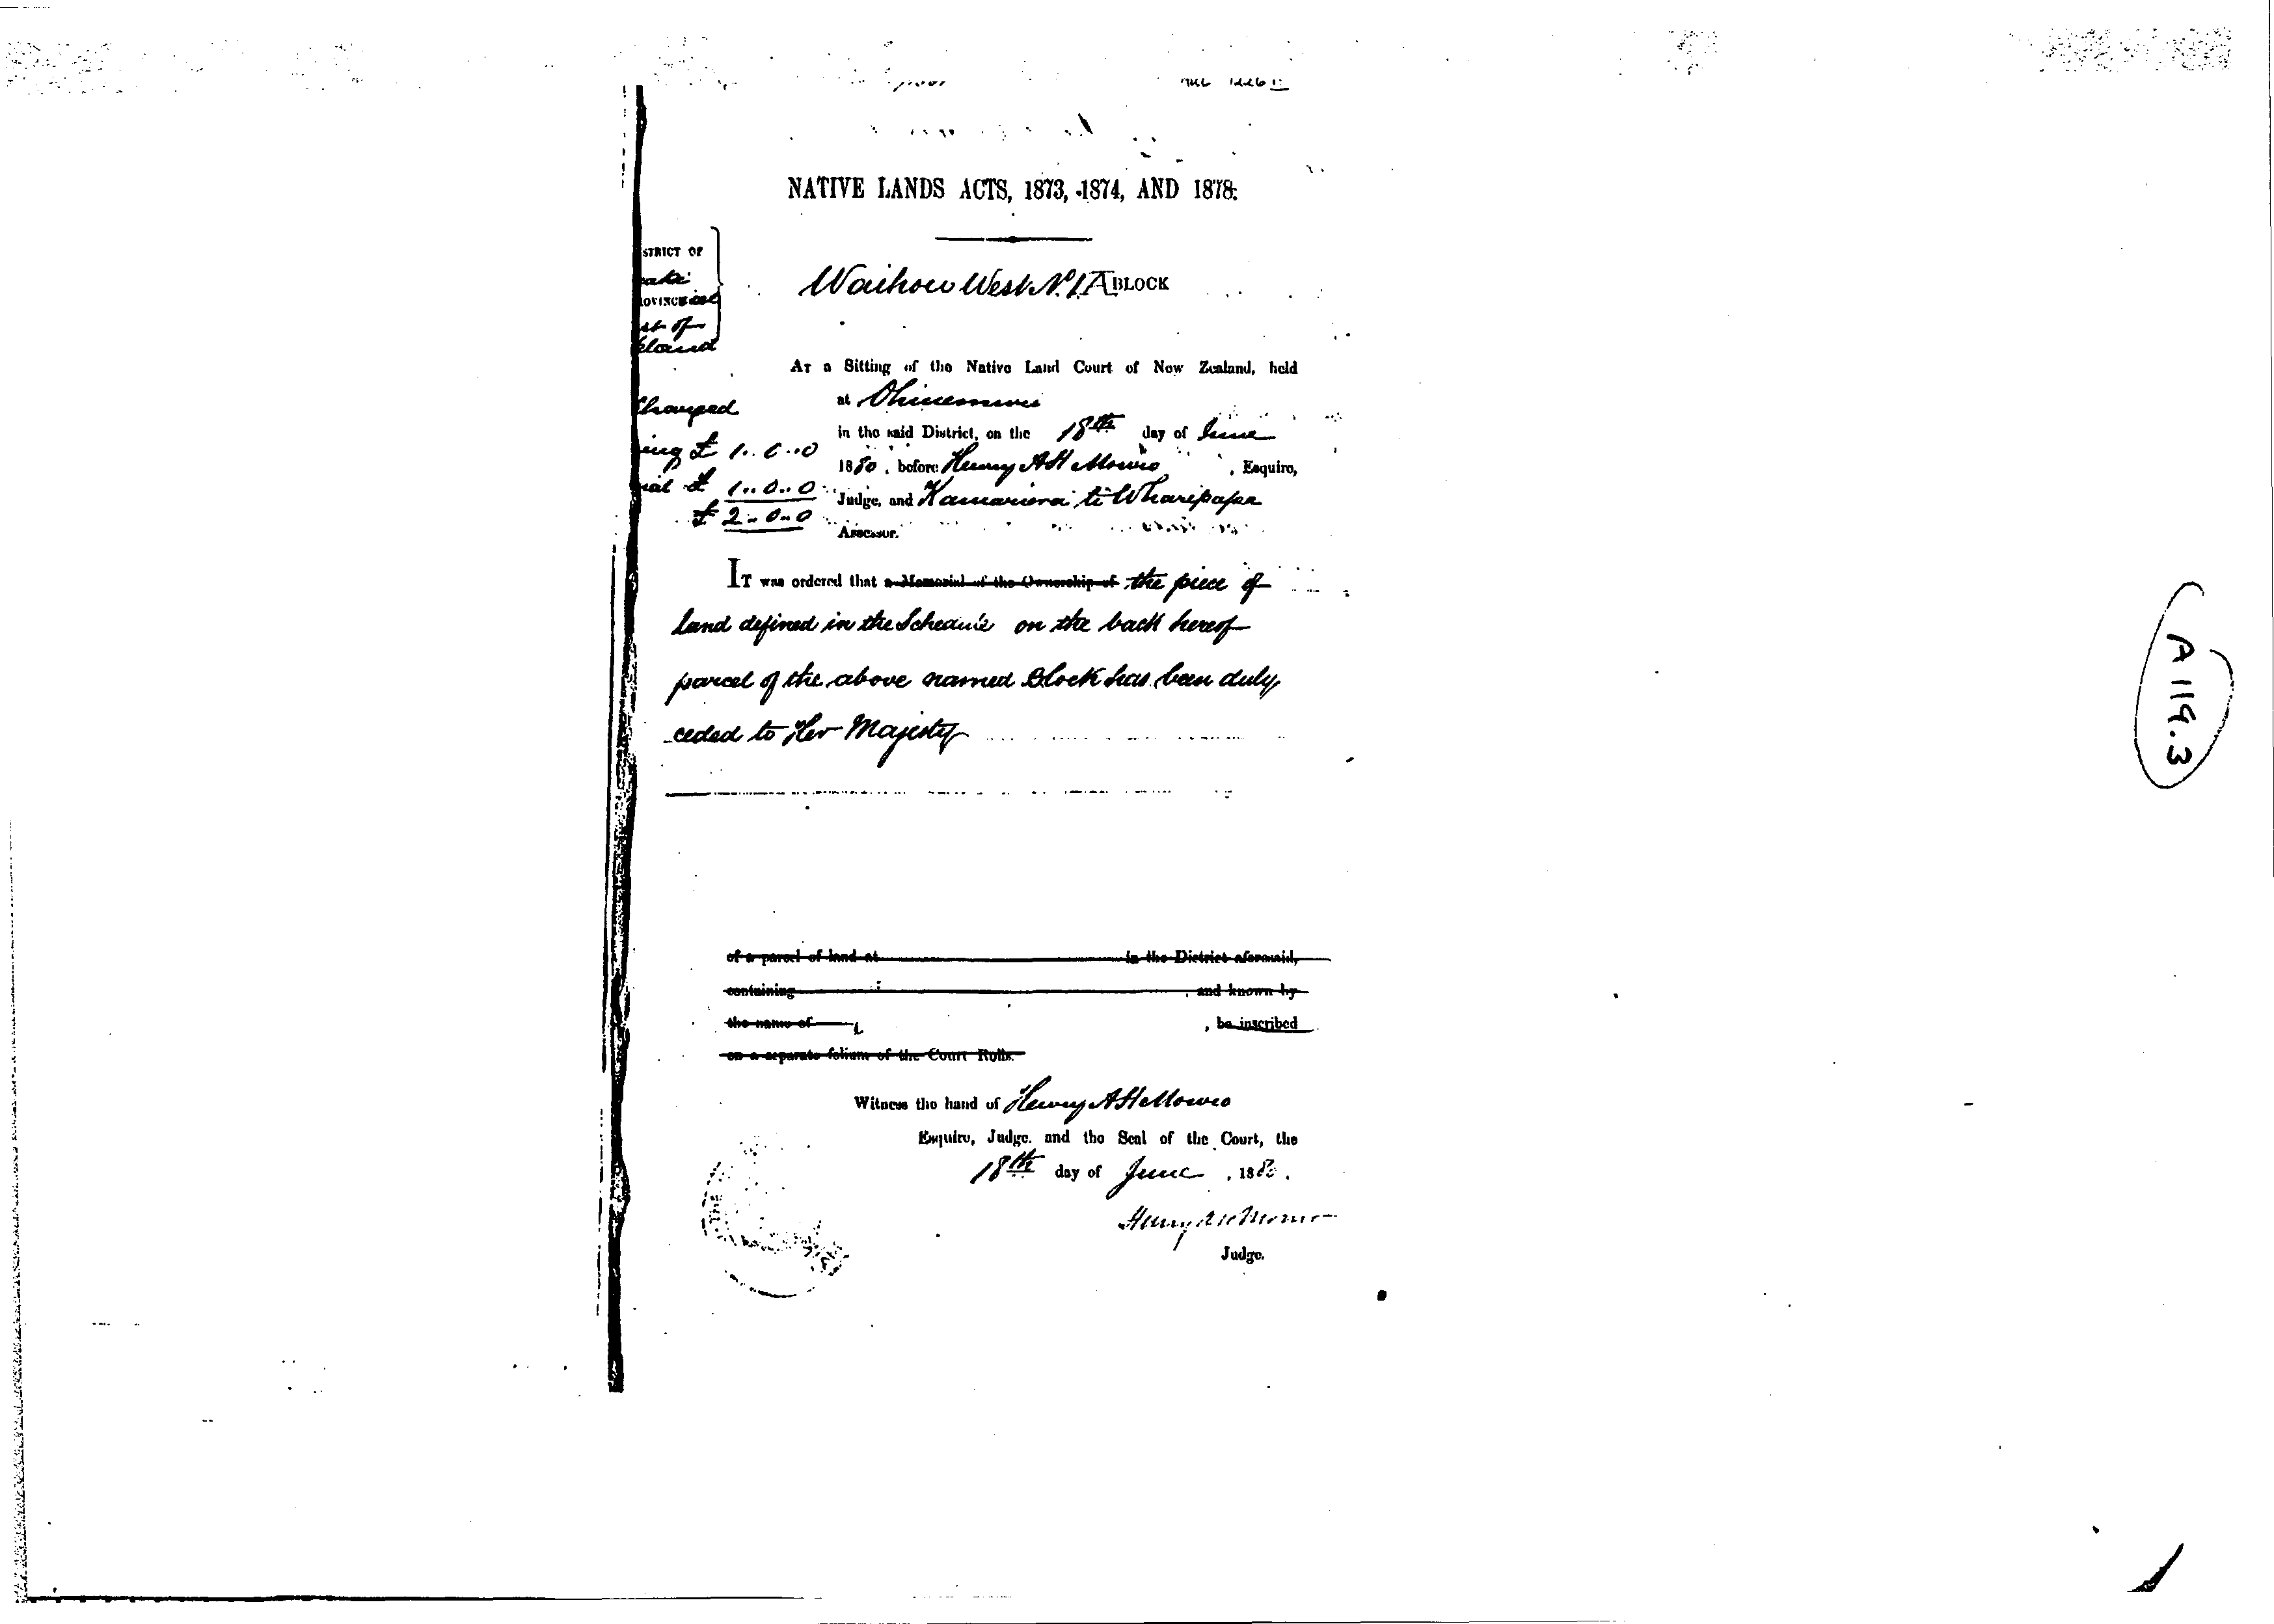 NATIVE LANDS ACTS, 1873, 1874, AND 1878.
STRICT OF
OVINCE
st of
kland
Waihou West No. 1A BLOCK
AT a Sitting of the Native Land Court of New Zealand, held
at Ohinemuri
in the said District, on the 18th day of June
1880, before Henry A H Monro, Esquire,
Judge, and Kamariera te Wharepapa
Assessor.
Charged
ing £ 1..0..0
ial £ 1..0..0
£ 2..0..0
IT was ordered that a Memorial of the Ownership of the piece of
land defined in the Schedule on the back hereof
parcel of the above named Block has been duly
ceded to Her Majesty
of a parcel of land at in the District aforesaid,
containing , and known by
the name of , be inscribed
on a separate folium of the Court Rolls.
Witness the hand of Henry A H Monro
Esquire, Judge, and the Seal of the Court, the
18th day of June, 1880.
Henry A H Monro
Judge.
A119.3